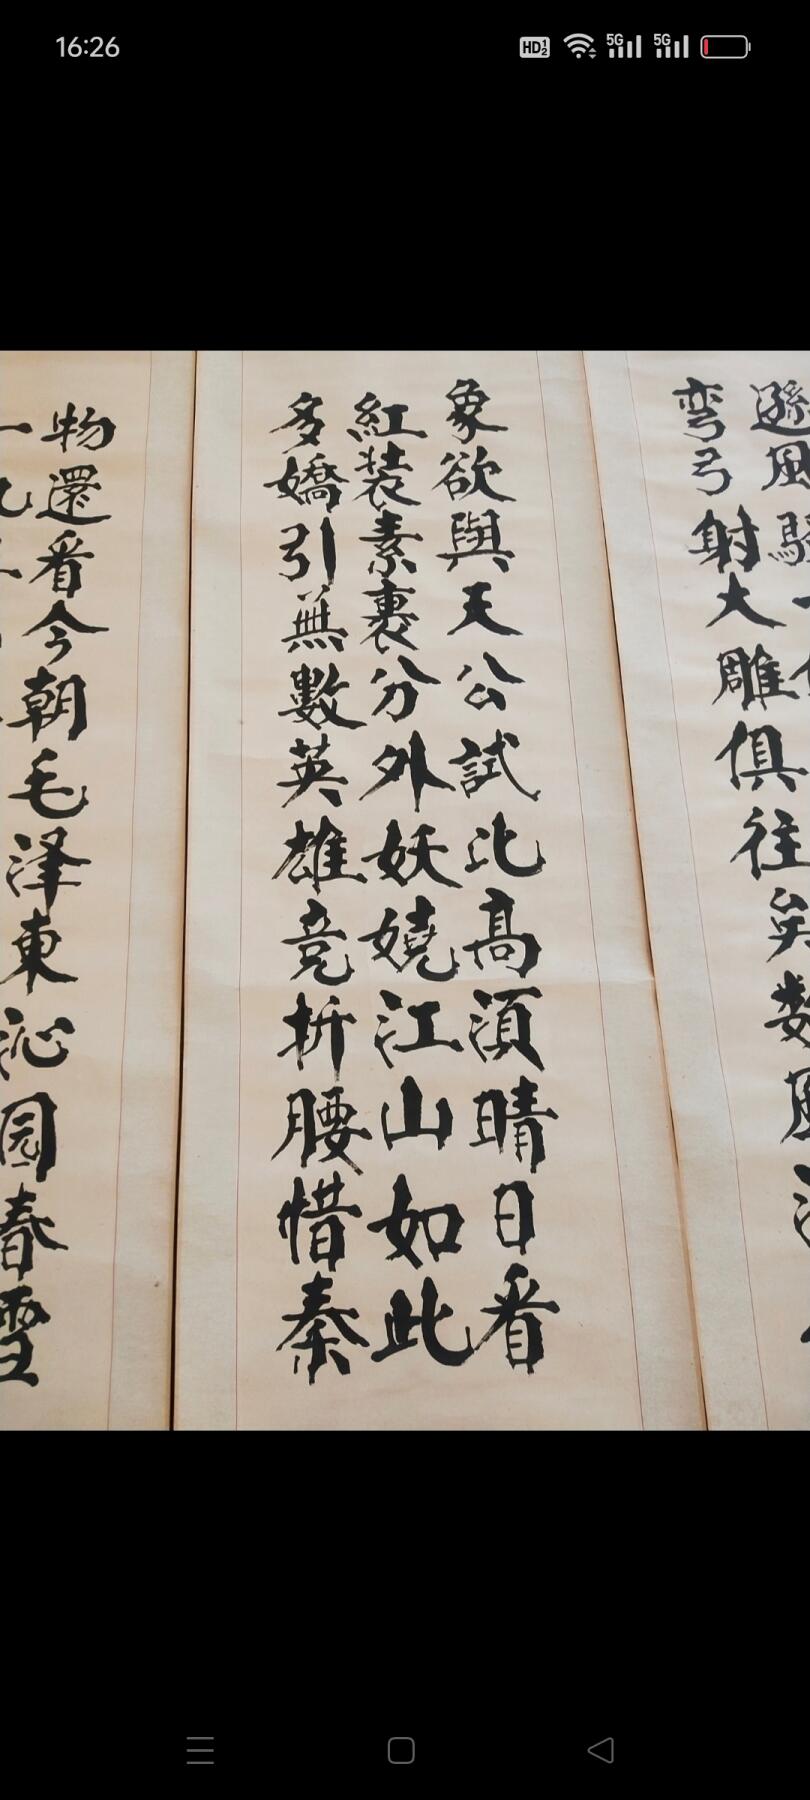 16:26
HD 1 2 5G 5G
遜風騷
弯弓射大雕俱往矣数風
象欲與天公試比高須晴日看
紅装素裹分外妖嬈江山如此
多嬌引無數英雄竞折腰惜秦
物還看今朝毛泽東沁园春雪
一九